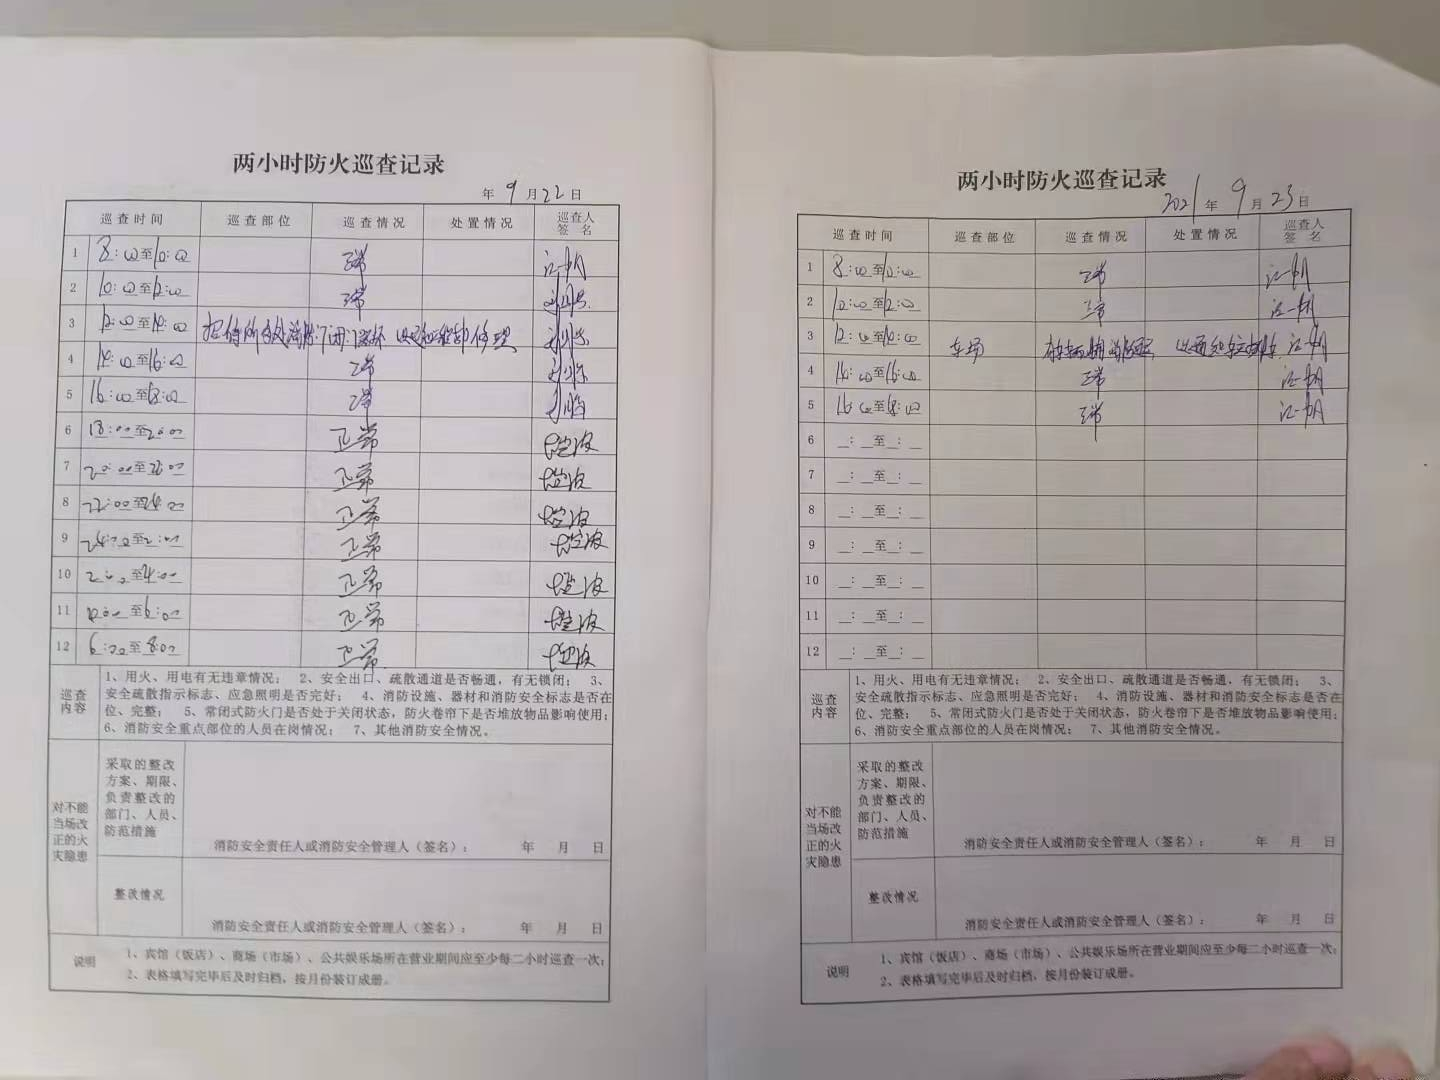 两小时防火巡查记录
年 9 月 22 日
巡查时间 巡查部位 巡查情况 处置情况 巡查人签名
1 8:00至10:00 正常
2 10:00至12:00 正常
3 12:00至14:00
4 14:00至16:00 正常
5 16:00至18:00 正常
6 18:00至20:00 正常
7 20:00至22:00 正常
8 22:00至24:00 正常
9 24:00至2:00 正常
10 2:00至4:00 正常
11 至6:00 正常
12 6:00至8:00 正常
巡查内容
1、用火、用电有无违章情况； 2、安全出口、疏散通道是否畅通，有无锁闭； 3、
安全疏散指示标志、应急照明是否完好； 4、消防设施、器材和消防安全标志是否在
位、完整； 5、常闭式防火门是否处于关闭状态，防火卷帘下是否堆放物品影响使用；
6、消防安全重点部位的人员在岗情况； 7、其他消防安全情况。
对不能当场改正的火灾隐患
采取的整改
方案、期限、
负责整改的
部门、人员、
防范措施
消防安全责任人或消防安全管理人（签名）： 年 月 日
整改情况
消防安全责任人或消防安全管理人（签名）： 年 月 日
说明
1、宾馆（饭店）、商场（市场）、公共娱乐场所在营业期间应至少每二小时巡查一次；
2、表格填写完毕后及时归档，按月份装订成册。
两小时防火巡查记录
2021 年 9 月 23 日
巡查时间 巡查部位 巡查情况 处置情况 巡查人签名
1 8:00至10:00 正常
2 10:00至12:00 正常
3 12:00至14:00 车场
4 14:00至16:00 正常
5 16:00至18:00 正常
6 _:_至_:_
7 _:_至_:_
8 _:_至_:_
9 _:_至_:_
10 _:_至_:_
11 _:_至_:_
12 _:_至_:_
巡查内容
1、用火、用电有无违章情况； 2、安全出口、疏散通道是否畅通，有无锁闭； 3、
安全疏散指示标志、应急照明是否完好； 4、消防设施、器材和消防安全标志是否在
位、完整； 5、常闭式防火门是否处于关闭状态，防火卷帘下是否堆放物品影响使用；
6、消防安全重点部位的人员在岗情况； 7、其他消防安全情况。
对不能当场改正的火灾隐患
采取的整改
方案、期限、
负责整改的
部门、人员、
防范措施
消防安全责任人或消防安全管理人（签名）： 年 月 日
整改情况
消防安全责任人或消防安全管理人（签名）： 年 月 日
说明
1、宾馆（饭店）、商场（市场）、公共娱乐场所在营业期间应至少每二小时巡查一次；
2、表格填写完毕后及时归档，按月份装订成册。